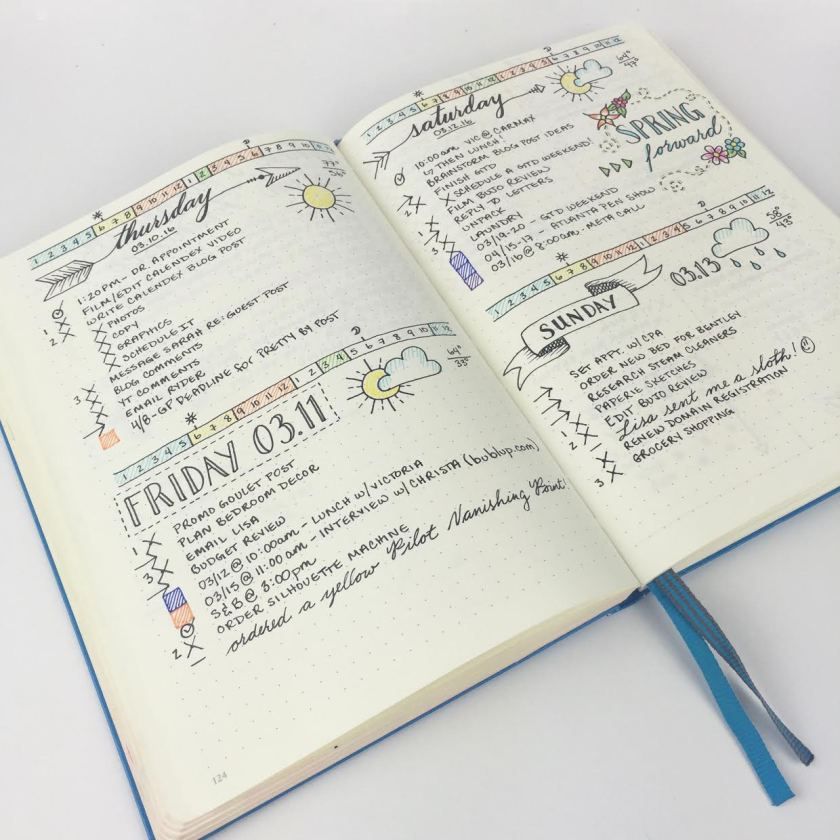 1 2 3 4 5 6 7 8 9 10 11 12 1 2 3 4 5 6 7 8 9 10 11 12
D
thursday
03.10.16
77°
56°
1:20 PM - DR. APPOINTMENT
FILM/EDIT CALENDEX VIDEO
WRITE CALENDEX BLOG POST
PHOTOS
COPY
GRAPHICS
SCHEDULE IT
MESSAGE SARAH RE: GUEST POST
BLOG COMMENTS
YT COMMENTS
EMAIL RYDER
4/8 - GP DEADLINE for PRETTY BY POST
1
2
3
1 2 3 4 5 6 7 8 9 10 11 12 1 2 3 4 5 6 7 8 9 10 11 12
D
FRIDAY 03.11
64°
35°
PROMO GOULET POST
PLAN BEDROOM DECOR
EMAIL LISA
BUDGET REVIEW
03/12 @ 10:00am - LUNCH W/VICTORIA
03/15 @ 11:00am - INTERVIEW W/CHRISTA (bublup.com)
S&B @ 8:00pm
ORDER SILHOUETTE MACHINE
ordered a yellow Pilot Vanishing Point!
1
3
2
124
1 2 3 4 5 6 7 8 9 10 11 12 1 2 3 4 5 6 7 8 9 10 11 12
D
saturday
03.12.16
64°
47°
SPRING
forward
10:00am VIC @ CARMAX
↳ THEN LUNCH!
BRAINSTORM BLOG POST IDEAS
FINISH GTD
SCHEDULE A GTD WEEKEND!
FILM BUJO REVIEW
REPLY TO LETTERS
UNPACK
LAUNDRY
03/18-20 - GTD WEEKEND
04/15-17 - ATLANTA PEN SHOW
03/16 @ 8:00am - META CALL
2
1
1 2 3 4 5 6 7 8 9 10 11 12 1 2 3 4 5 6 7 8 9 10 11 12
D
SUNDAY
03.13
58°
43°
SET APPT. W/CPA
ORDER NEW BED FOR BENTLEY
RESEARCH STEAM CLEANERS
PAPERIE SKETCHES
EDIT BUJO REVIEW
Lisa sent me a sloth!
RENEW DOMAIN REGISTRATION
GROCERY SHOPPING
1
2
3